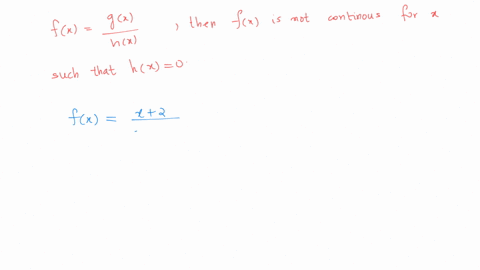 f(x) = g(x)/h(x) , then f(x) is not continous for x
such that h(x)=0.
f(x) = x+2